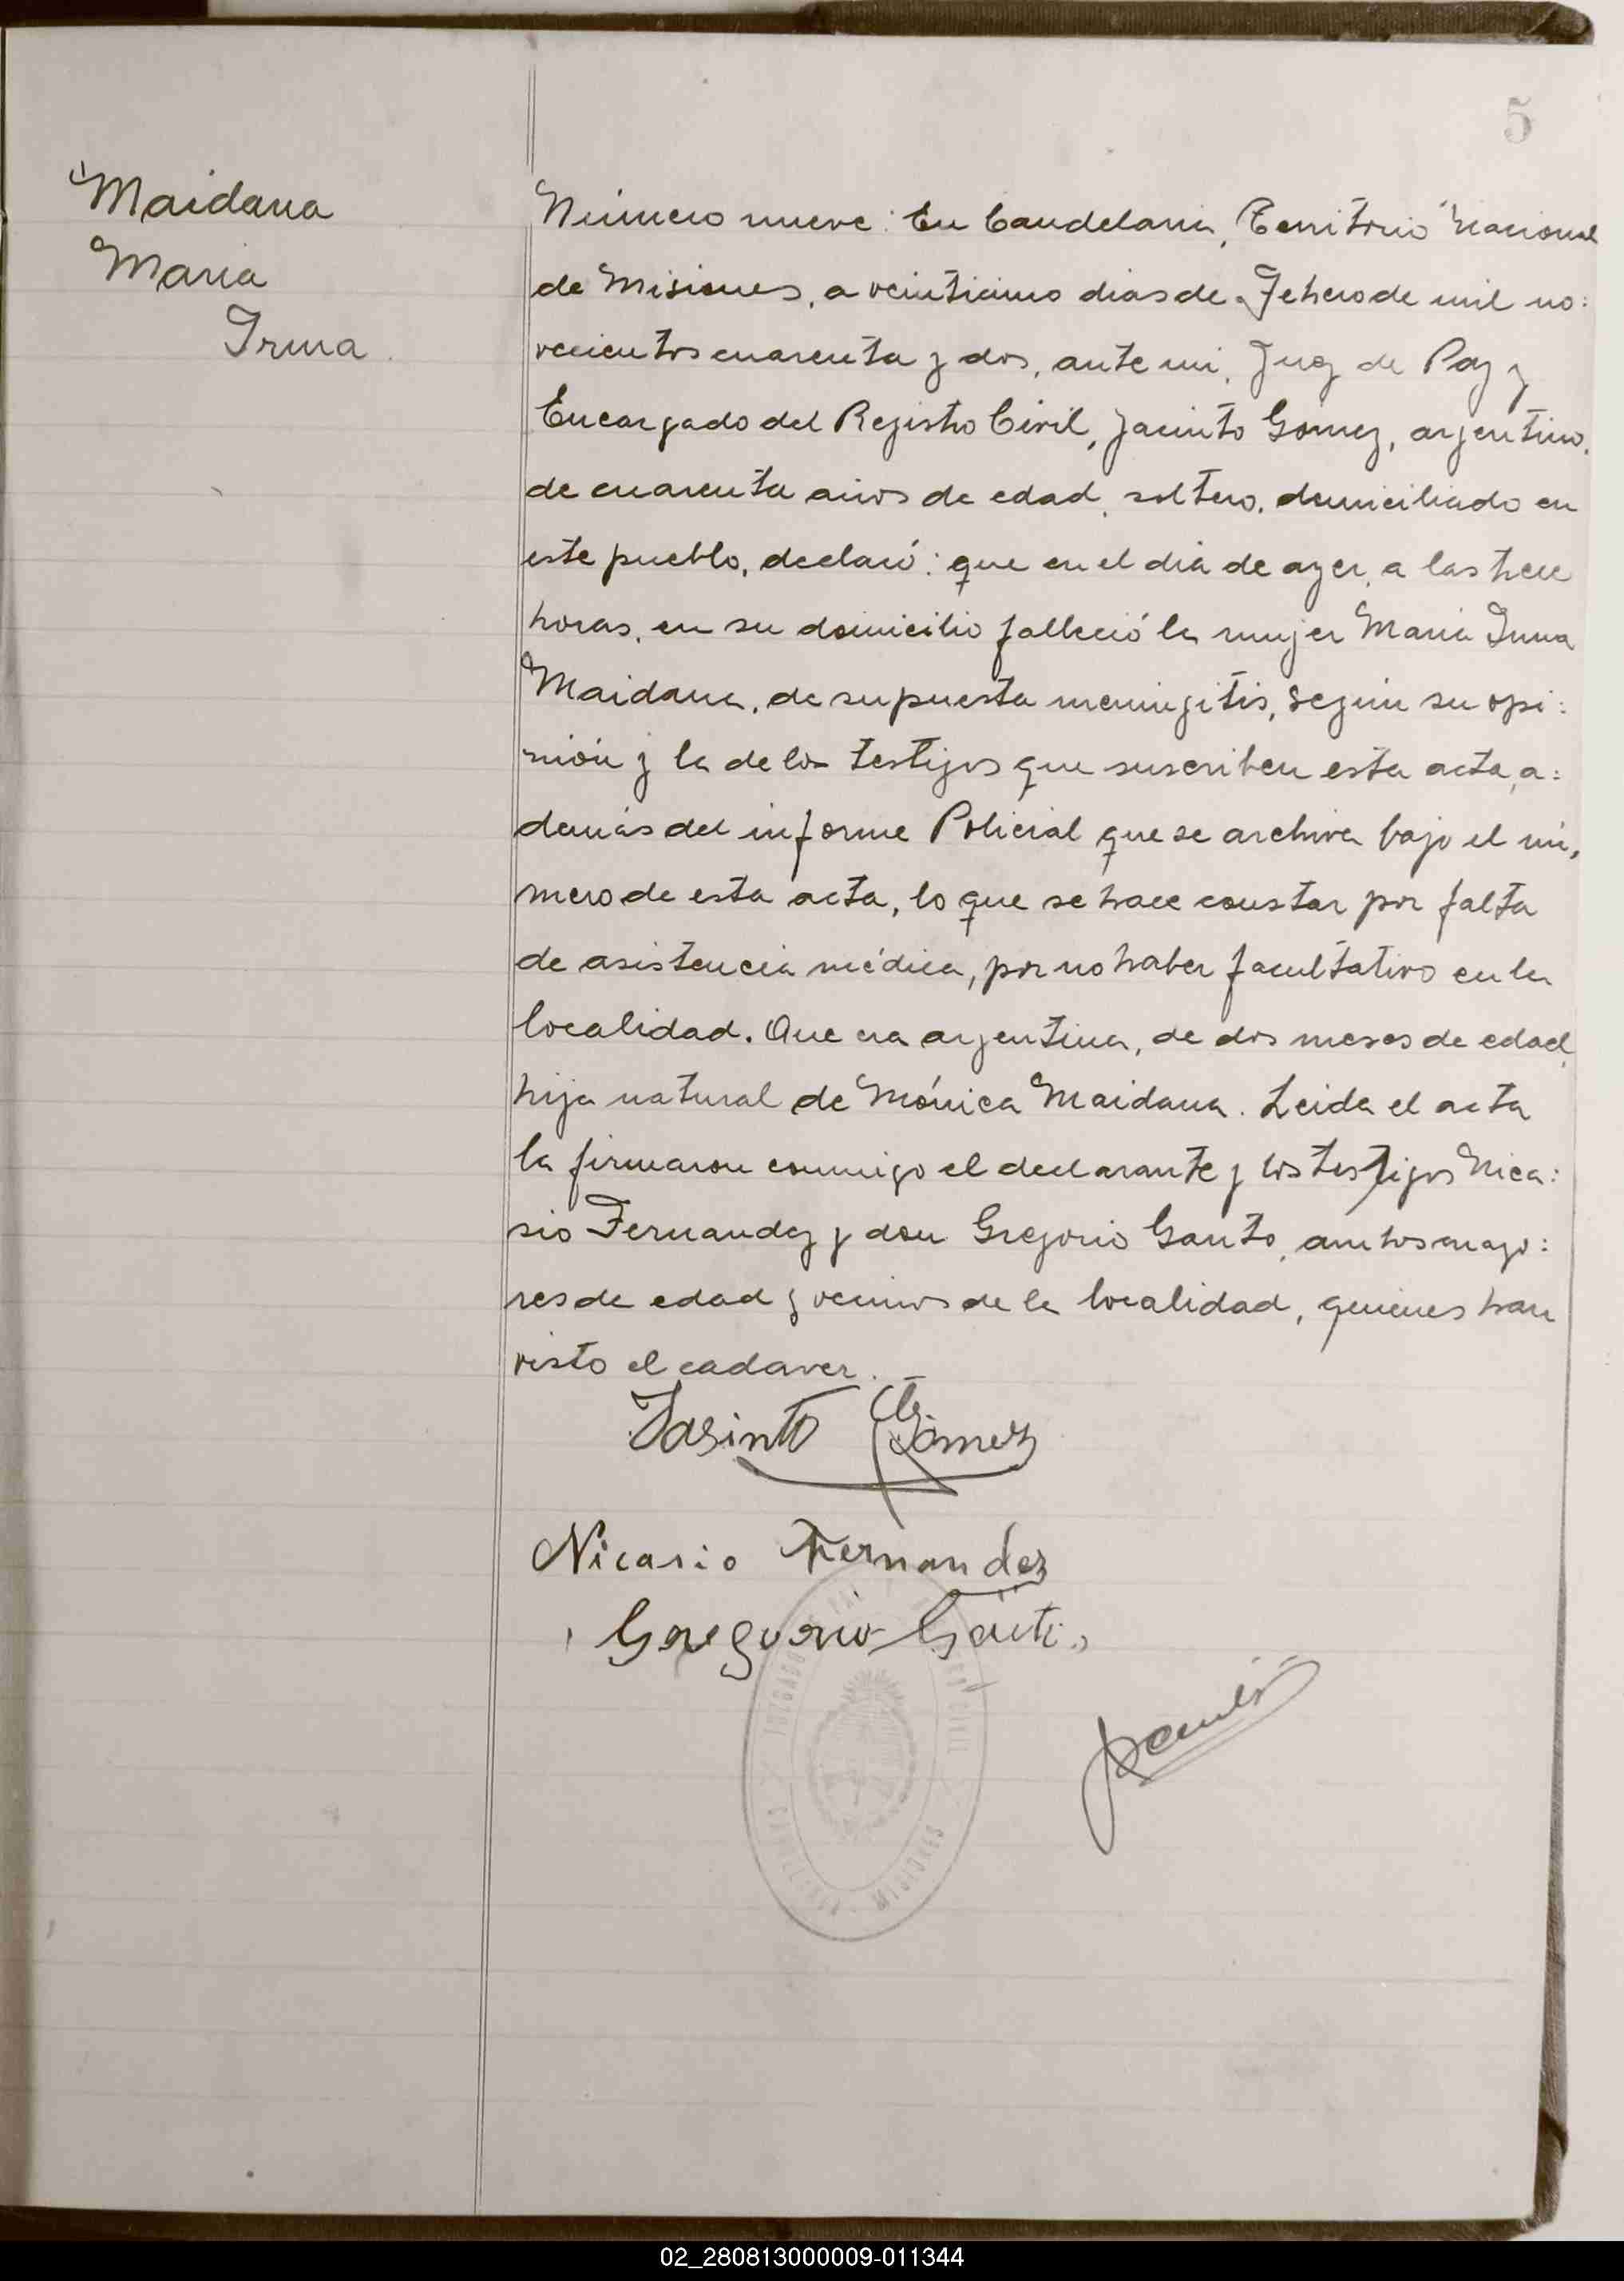 5
Maidana
Maria
Irma
Número nueve: En Candelaria, Territorio Nacional
de Misiones, a veinticinco dias de Febrero de mil no:
vecientos cuarenta y dos, ante mi, Juez de Paz y
Encargado del Registro Civil, Jacinto Gomez, argentino,
de cuarenta años de edad, soltero, domiciliado en
este pueblo, declaró: que en el dia de ayer, a las trece
horas, en su domicilio falleció la mujer Maria Irma
Maidana, de supuesta meningitis, según su opi:
nión y la de los testigos que suscriben esta acta, a:
demás del informe Policial que se archiva bajo el nú,
mero de esta acta, lo que se hace constar por falta
de asistencia médica, por no haber facultativo en la
localidad. Que era argentina, de dos meses de edad,
hija natural de Mónica Maidana. Leida el acta
la firmaron conmigo el declarante y los testigos Nica:
sio Fernandez y don Gregorio Gauto, ambos mayo:
res de edad y vecinos de la localidad, quienes han
visto el cadaver.
Jasinto Gomez
Nicasio Fernandez
Gregorio Gauto
JUZGADO DE PAZ CIVIL
MISIONES
02_280813000009-011344